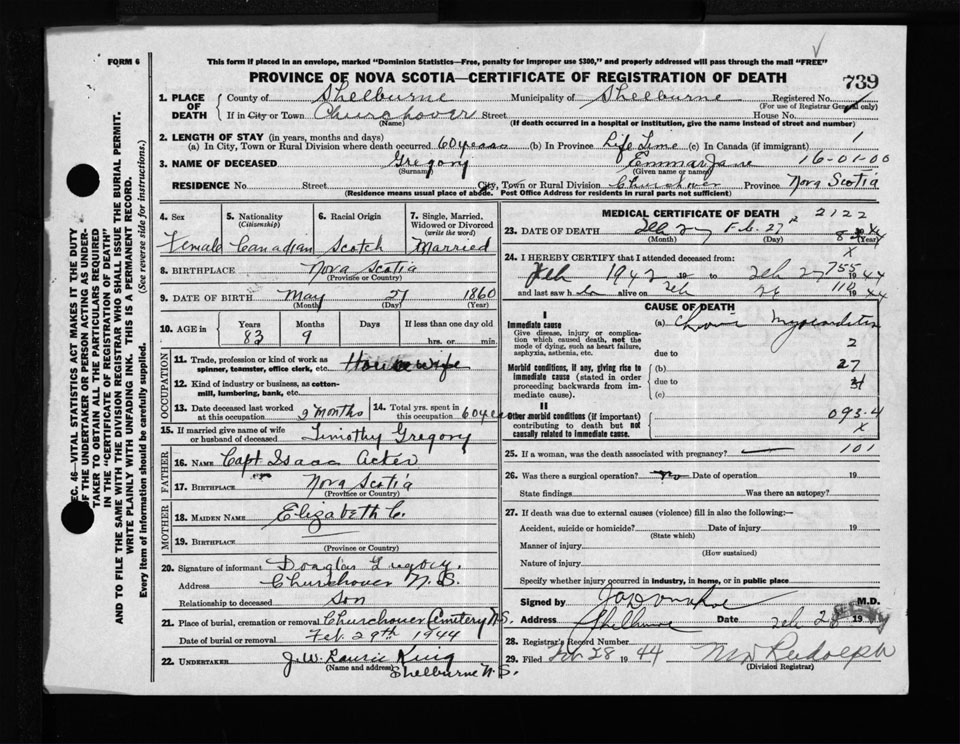 FORM 6
This form if placed in an envelope, marked "Dominion Statistics—Free, penalty for improper use $300," and properly addressed will pass through the mail "FREE"
PROVINCE OF NOVA SCOTIA—CERTIFICATE OF REGISTRATION OF DEATH
739
1. PLACE OF DEATH
County of Shelburne Municipality of Shelburne Registered No.
(For use of Registrar General only)
If in City or Town Churchover Street House No.
(Name) (If death occurred in a hospital or institution, give the name instead of street and number)
2. LENGTH OF STAY (in years, months and days)
(a) In City, Town or Rural Division where death occurred 60 years (b) In Province Life Time (c) In Canada (if immigrant) 1
3. NAME OF DECEASED Gregory Emma Jane 16-01-00
(Surname) (Given name or names)
RESIDENCE No. Street City, Town or Rural Division Churchover Province Nova Scotia
(Residence means usual place of abode. Post Office Address for residents in rural parts not sufficient)
4. Sex
Female
5. Nationality
(Citizenship)
Canadian
6. Racial Origin
Scotch
7. Single, Married, Widowed or Divorced
(write the word)
Married
8. BIRTHPLACE Nova Scotia
(Province or Country)
9. DATE OF BIRTH May 27 1860
(Month) (Day) (Year)
10. AGE in Years Months Days If less than one day old
83 9 hrs. or min.
OCCUPATION
11. Trade, profession or kind of work as spinner, teamster, office clerk, etc. Housewife
12. Kind of industry or business, as cotton-mill, lumbering, bank, etc.
13. Date deceased last worked at this occupation 9 months
14. Total yrs. spent in this occupation 60 years
15. If married give name of wife or husband of deceased Timothy Gregory
FATHER
16. NAME Capt Isaac Acker
17. BIRTHPLACE Nova Scotia
(Province or Country)
MOTHER
18. MAIDEN NAME Elizabeth C.
19. BIRTHPLACE
(Province or Country)
20. Signature of informant Douglas Gregory.
Address Churchover N.S.
Relationship to deceased Son
21. Place of burial, cremation or removal Churchover Cemetery N.S.
Date of burial or removal Feb. 29th 1944
22. UNDERTAKER J.W. Laurie King
(Name and address) Shelburne N.S.
MEDICAL CERTIFICATE OF DEATH 2122
23. Feb 27 Feb. 27
(Month) (Day) (Year)
24. I HEREBY CERTIFY that I attended deceased from:
Feb 1942 to Feb 27 1944
755
and last saw h alive on Feb 26 19 44
110
CAUSE OF DEATH
I
Immediate cause
Give disease, injury or complication which caused death, not the mode of dying, such as heart failure, asphyxia, asthenia, etc.
(a) Chronic Myocarditis
due to
2
Morbid conditions, if any, giving rise to immediate cause (stated in order proceeding backwards from immediate cause).
(b)
27
due to
(c)
II
Other morbid conditions (if important) contributing to death but not causally related to immediate cause.
093-4
x
25. If a woman, was the death associated with pregnancy? 101
26. Was there a surgical operation? no Date of operation 19
State findings Was there an autopsy?
27. If death was due to external causes (violence) fill in also the following:—
Accident, suicide or homicide? Date of injury 19
(State which)
Manner of injury
(How sustained)
Nature of injury
Specify whether injury occurred in industry, in home, or in public place
Signed by M.D.
Address Shelburne Date Feb 28 19
28. Registrar's Record Number
29. Filed Feb 28 1944 Rudolph
(Division Registrar)
SEC. 46—VITAL STATISTICS ACT MAKES IT THE DUTY
OF THE UNDERTAKER OR PERSON ACTING AS UNDER-
TAKER TO OBTAIN ALL THE PARTICULARS REQUIRED
IN THE "CERTIFICATE OF REGISTRATION OF DEATH"
AND TO FILE THE SAME WITH THE DIVISION REGISTRAR WHO SHALL ISSUE THE BURIAL PERMIT.
WRITE PLAINLY WITH UNFADING INK. THIS IS A PERMANENT RECORD.
Every item of information should be carefully supplied. (See reverse side for instructions.)